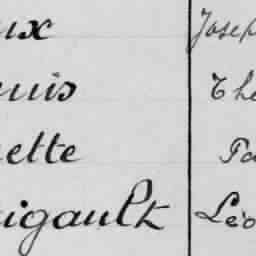 ux Josep
nuis Thé
ette Pa
igault Léo